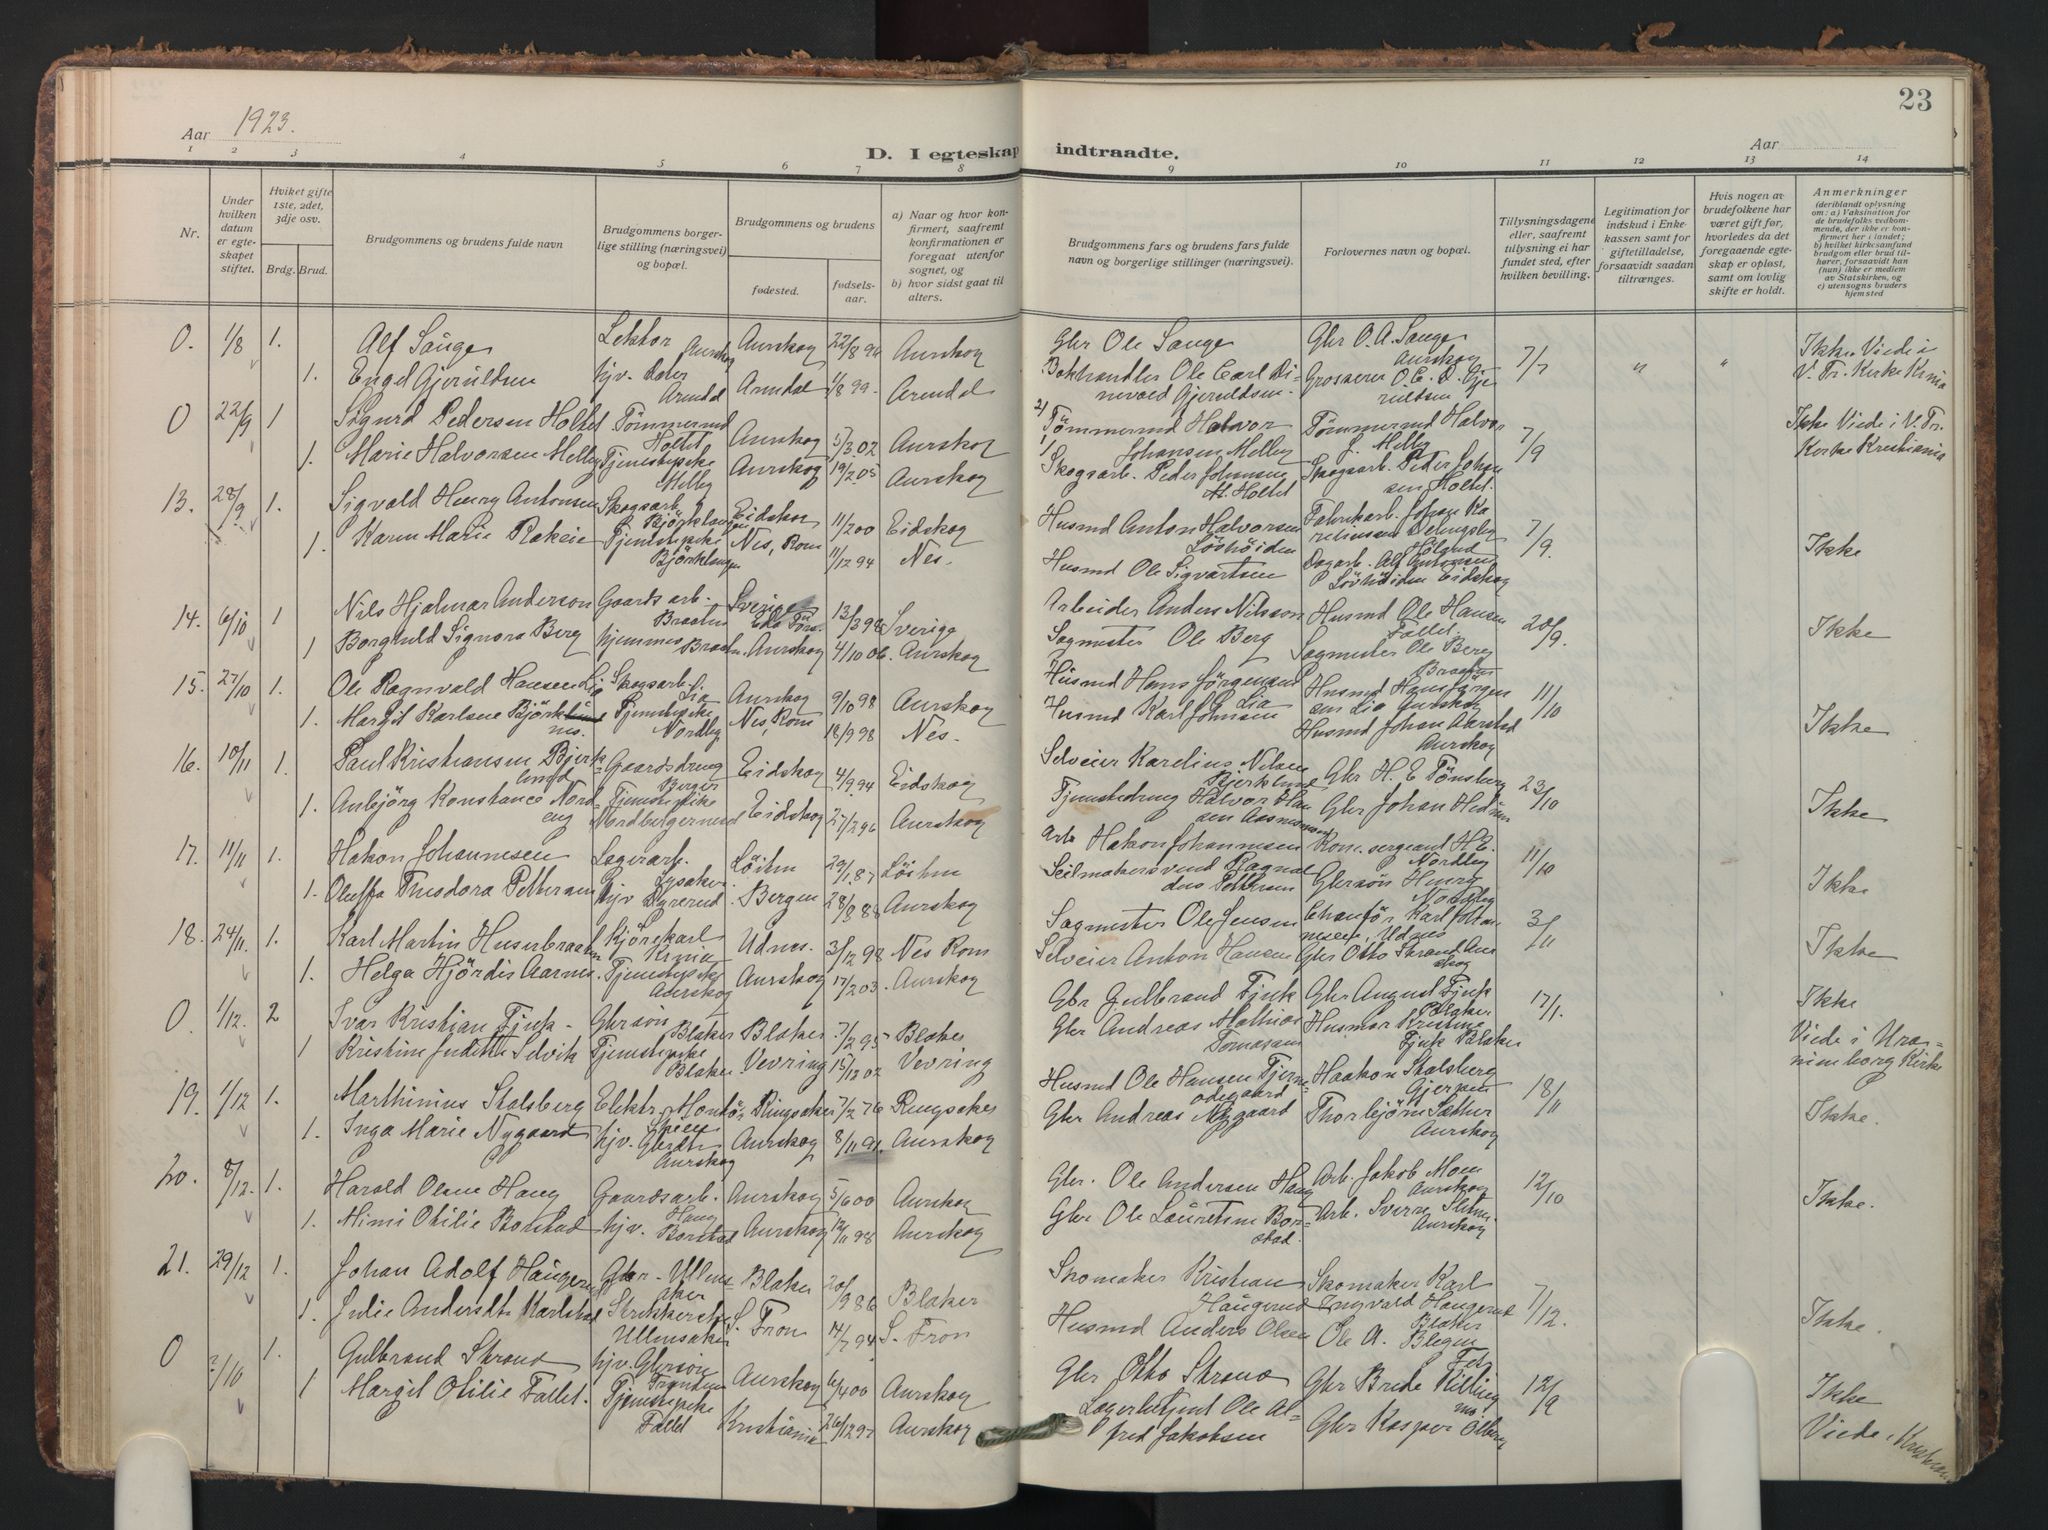 23
Aar 1923.
D. I egteskap indtraadte.
Aar
1 2 3 4 5 6 7 8 9 10 11 12 13 14
Nr.
Under hvilken datum er egteskapet stiftet.
Hviket gifte 1ste, 2det, 3dje osv.
Brdg. Brud.
Brudgommens og brudens fulde navn
Brudgommens borgerlige stilling (næringsvei) og bopæl.
Brudgommens og brudens
fødested.
fødselsaar.
a) Naar og hvor konfirmert, saafremt konfirmationen er foregaat utenfor sognet, og
b) hvor sidst gaat til alters.
Brudgommens fars og brudens fars fulde navn og borgerlige stillinger (næringsvei).
Forlovernes navn og bopæl.
Tillysningsdagene eller, saafremt tillysning ei har fundet sted, efter hvilken bevilling.
Legitimation for indskud i Enkekassen samt for giftetilladelse, forsaavidt saadan tiltrænges.
Hvis nogen av brudefolkene har været gift før, hvorledes da det foregaaende egteskap er opløst, samt om lovlig skifte er holdt.
Anmerkninger
(deriblandt oplysning om: a) Vaksination for de brudefolks vedkommende, der ikke er konfirmert her i landet; b) hvilket kirkesamfund brudgom eller brud tilhører, forsaavidt han (hun) ikke er medlem av Statskirken, og c) utensogns bruders hjemsted
0. 1/8 1. Alf Sauge Lektor Aurskog Aurskog 22/8 96 Aurskog Gbr Ole Sauge Gbr O. A. Sauge Aurskog 7/7 " " Ikke Viede i V. Tr. Kirke Krnia
1. Engel Gjeruldsen hjv. dater Arendal Arendal 1/8 99. Arendal Bokhandler Ole Carl Dinevald Gjeruldsen Grosserer O. C. D. Gjeruldsen
0 22/9 1 Sigurd Pedersen Holtet Tömmermd Holtet Aurskog 5/3 02 Aurskog 2/ Tömmermd Halvor Johansen Melby Tömmermd Halvor J. Melby 7/9 Ikke Viede i V. Tr. Kirke Kristiania
1. Marie Halvorsen Melby Tjenestepike Melby Aurskog 19/2 05 Aurskog 1/ Skogsarb. Peder Johansen Holtet Skogsarb. Peder Johansen Holtet.
13. 28/9 1. Sigvald Henry Antonsen Skogsarb. Björklangen Eidskog 11/2 00 Eidskog Husmd Anton Halvorsen Lövhöiden Fabrikarb. Johan Karelinsen Delingsby Höland 7/9. Ikke
1. Karen Marie Rakeie Tjenestepike Björklangen Nes, Rom 11/12 94 Nes. Husmd Ole Sigvartsen Dagarb. Alf Antonsen Lövhöiden Eidskog
14. 6/10 1 Nils Hjalmar Anderson Gaardsarb. Braaten Sverige 13/3 96 Sverige Arbeider Anders Nilsson Husmd Ole Hansen Fallet. 20/9. Ikke
1 Borghild Signora Berg hjemmev. Braaten. Aurskog 4/10 06. Aurskog Sagmester Ole Berg Sagmester Ole Berg Braaten
15. 27/10 1. Ole Ragnvald Hansen Lia Skogsarb. Lia Aurskog 9/10 98 Aurskog Husmd Hans Jörgensen Lia Husmd Hans Jörgensen Lia Aurskog 11/10 Ikke
1. Margit Karlsene Björknes. Tjenestepike Nordby Nes, Rom 18/9 98 Nes. Husmd Karl Johnsen Husmd Johan Aarstad Aurskog
16. 10/11 1. Paul Kristiansen Bjerklund Gaardsdreng Berger Eidskog 4/9. 94 Eidskog Selveier Karelius Nilsen Bjerklund Gbr H. E. Tönsberg 23/10 Ikke
1. Anbjörg Konstance Nordeng Tjenestepike Nordbergernesd Eidskog 27/2 96 Aurskog Tjenestedreng Halvor Hansen Gbr Johan Heden
17. 11/11 1. Hakon Johannesen Lagerarb. Lysaker. Löiten 29/1. 87 Löiten Arb Hakon Johannesen Kom. sergeant H. E. Nordby 11/10 Ikke
1. Oluffa Theodora Pettersen hjv Dyrerud. Bergen 28/8 88 Aurskog Seilmakersvend Ragnaldus Pettersen Gbrsön Henry Nordby
18. 24/11. 1. Karl Martin Huserbraaten Kjörekarl Krnia Udnes. 3/12 98 Nes Rom Sagmester Ole Jensen Chauför Karl Johannesen, Udnes 3/11 Ikke
1. Helga Hjördis Aarnes. Tjenestepike Aurskog Aurskog 17/2 03. Aurskog Selveier Anton Hansen Gbr Otto Strand Aurskog
0. 1/12. 2 Ivar Kristian Fjuk- Gbrsön Blaker Blaker 7/2 95 Blaker Gbr Gulbrand Fjuk Gbr August Fjuk Blaker 17/1. Ikke Viede i Uranienborg Kirke
1 Kristine Judith Selvik Tjenestepike Blaker Vevring 15/12 02 Vevring Gbr Andreas Mathias Tomassen Husmor Kristine Fjuk Blaker
19. 1/12 1. Marthinius Stalsberg Elektr. Montör Ringsaker 7/2 76 Ringsaker Husmd Ole Hansen Tjernodegaard Haakon Stalsberg Gjerpen 18/11 Ikke.
1. Inga Marie Nygaard hjv. Gbrdtr Aurskog Aurskog 8/11 91. Aurskog Gbr Andreas Nygaard Thorbjörn Sæther Aurskog
20. 8/12. 1. Harald Olsen Haug Gaardsarb. Haug Aurskog 5/6 00 Aurskog Gbr. Ole Andersen Haug Arb. Jakob Moen Aurskog 12/10 Ikke.
1. Mimi Otilie Borstad hjv. Borstad Aurskog 12/11 98 Aurskog Gbr Ole Lauritsen Borstad. Arb. Sverre Aurskog
21. 29/12 1. Johan Adolf Haugerud Gbr- Ullensaker Blaker 20/9 86 Blaker Skomaker Kristian Haugerud Skomaker Karl Ingvald Haugerud Blaker 7/12. Ikke.
1. Julie Andersdtr Karlstad Strikkerske Ullensaker S. Fron 14/7 94 S. Fron Husmd Anders Olsen Ole A. Blegen Fet
0 ?/10 1. Gulbrand Strand hjv. Gbrsön Aurskog 6/4 00 Aurskog Gbr Otto Strand Gbr Brede Killingmo 12/9 Ikke Viede i
1 Margit Otilie Fallet. Tjenestepike Fallet Kristiania 26/12 97 Aurskog Lagerbetjent Ole Alfred Jakobsen Gbr Kasper Ölberg